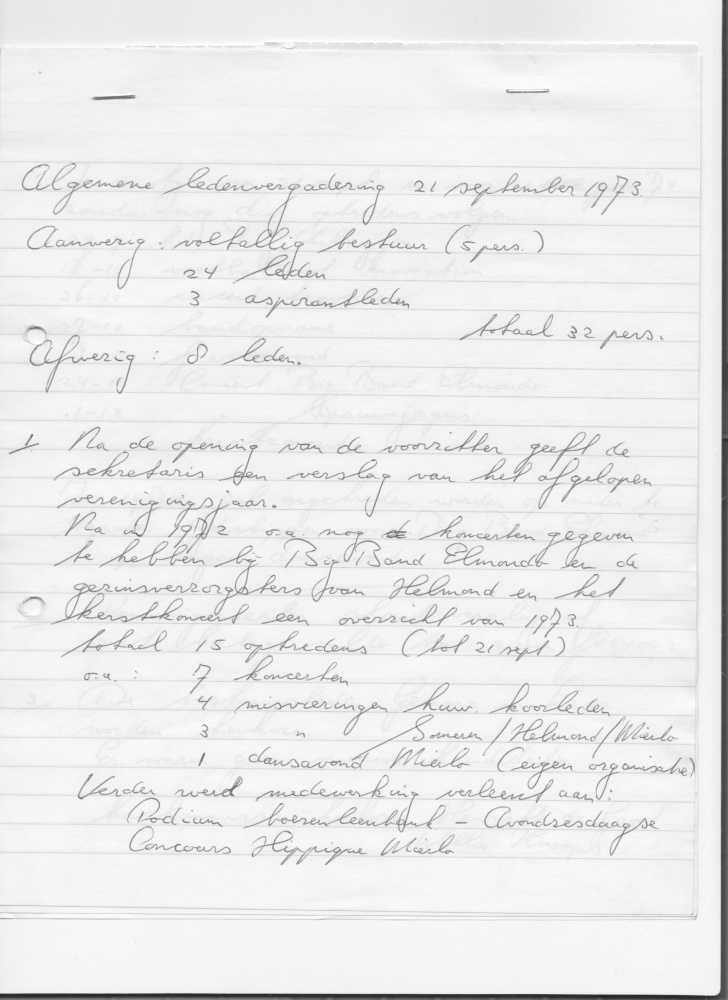 Algemene ledenvergadering 21 september 1973.
Aanwezig : voltallig bestuur (5 pers.)
24 leden
3 aspirantleden
totaal 32 pers.
Afwezig : 8 leden.
1 Na de opening van de voorzitter geeft de
sekretaris een verslag van het afgelopen
verenigingsjaar.
Na in 1972 o.a. nog koncerten gegeven
te hebben bij Big Band Elmondo en de
gezinsverzorgsters van Helmond en het
kerstkoncert een overzicht van 1973.
totaal 15 optredens (tot 21 sept)
o.a. : 7 koncerten
4 misvieringen huw. koorleden
3 " Someren/Helmond/Mierlo
1 dansavond Mierlo (eigen organisatie)
Verder werd medewerking verleent aan :
Podium boerenleenbank - Avondzesdaagse
Concours Hippique Mierlo